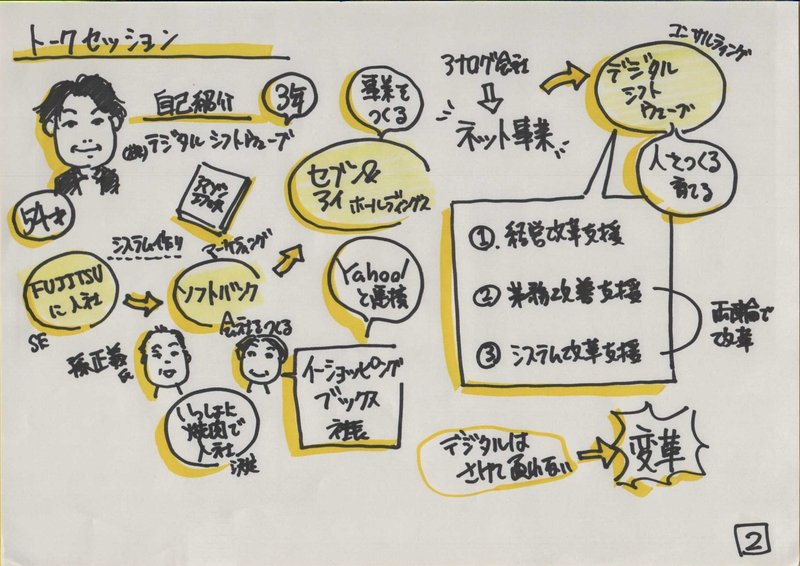 トークセッション
自己紹介
3年
(株)デジタルシフトウェーブ
54才
システム作り
マーケティング
FUJITSU
に入社
SE
ソフトバンク
会社をつくる
孫正義
氏
いっしょに
焼肉で
入社
決定
事業を
つくる
セブン&
アイ ホールディングス
Yahoo!
と直接
イーショッピング
ブックス
社長
アナログ会社
ネット事業
コンサルティング
デジタル
シフト
ウェーブ
人をつくる
育てる
①. 経営改革支援
② 業務改善支援
③ システム改革支援
両輪で
改革
デジタルは
さけて通れない
変革
2